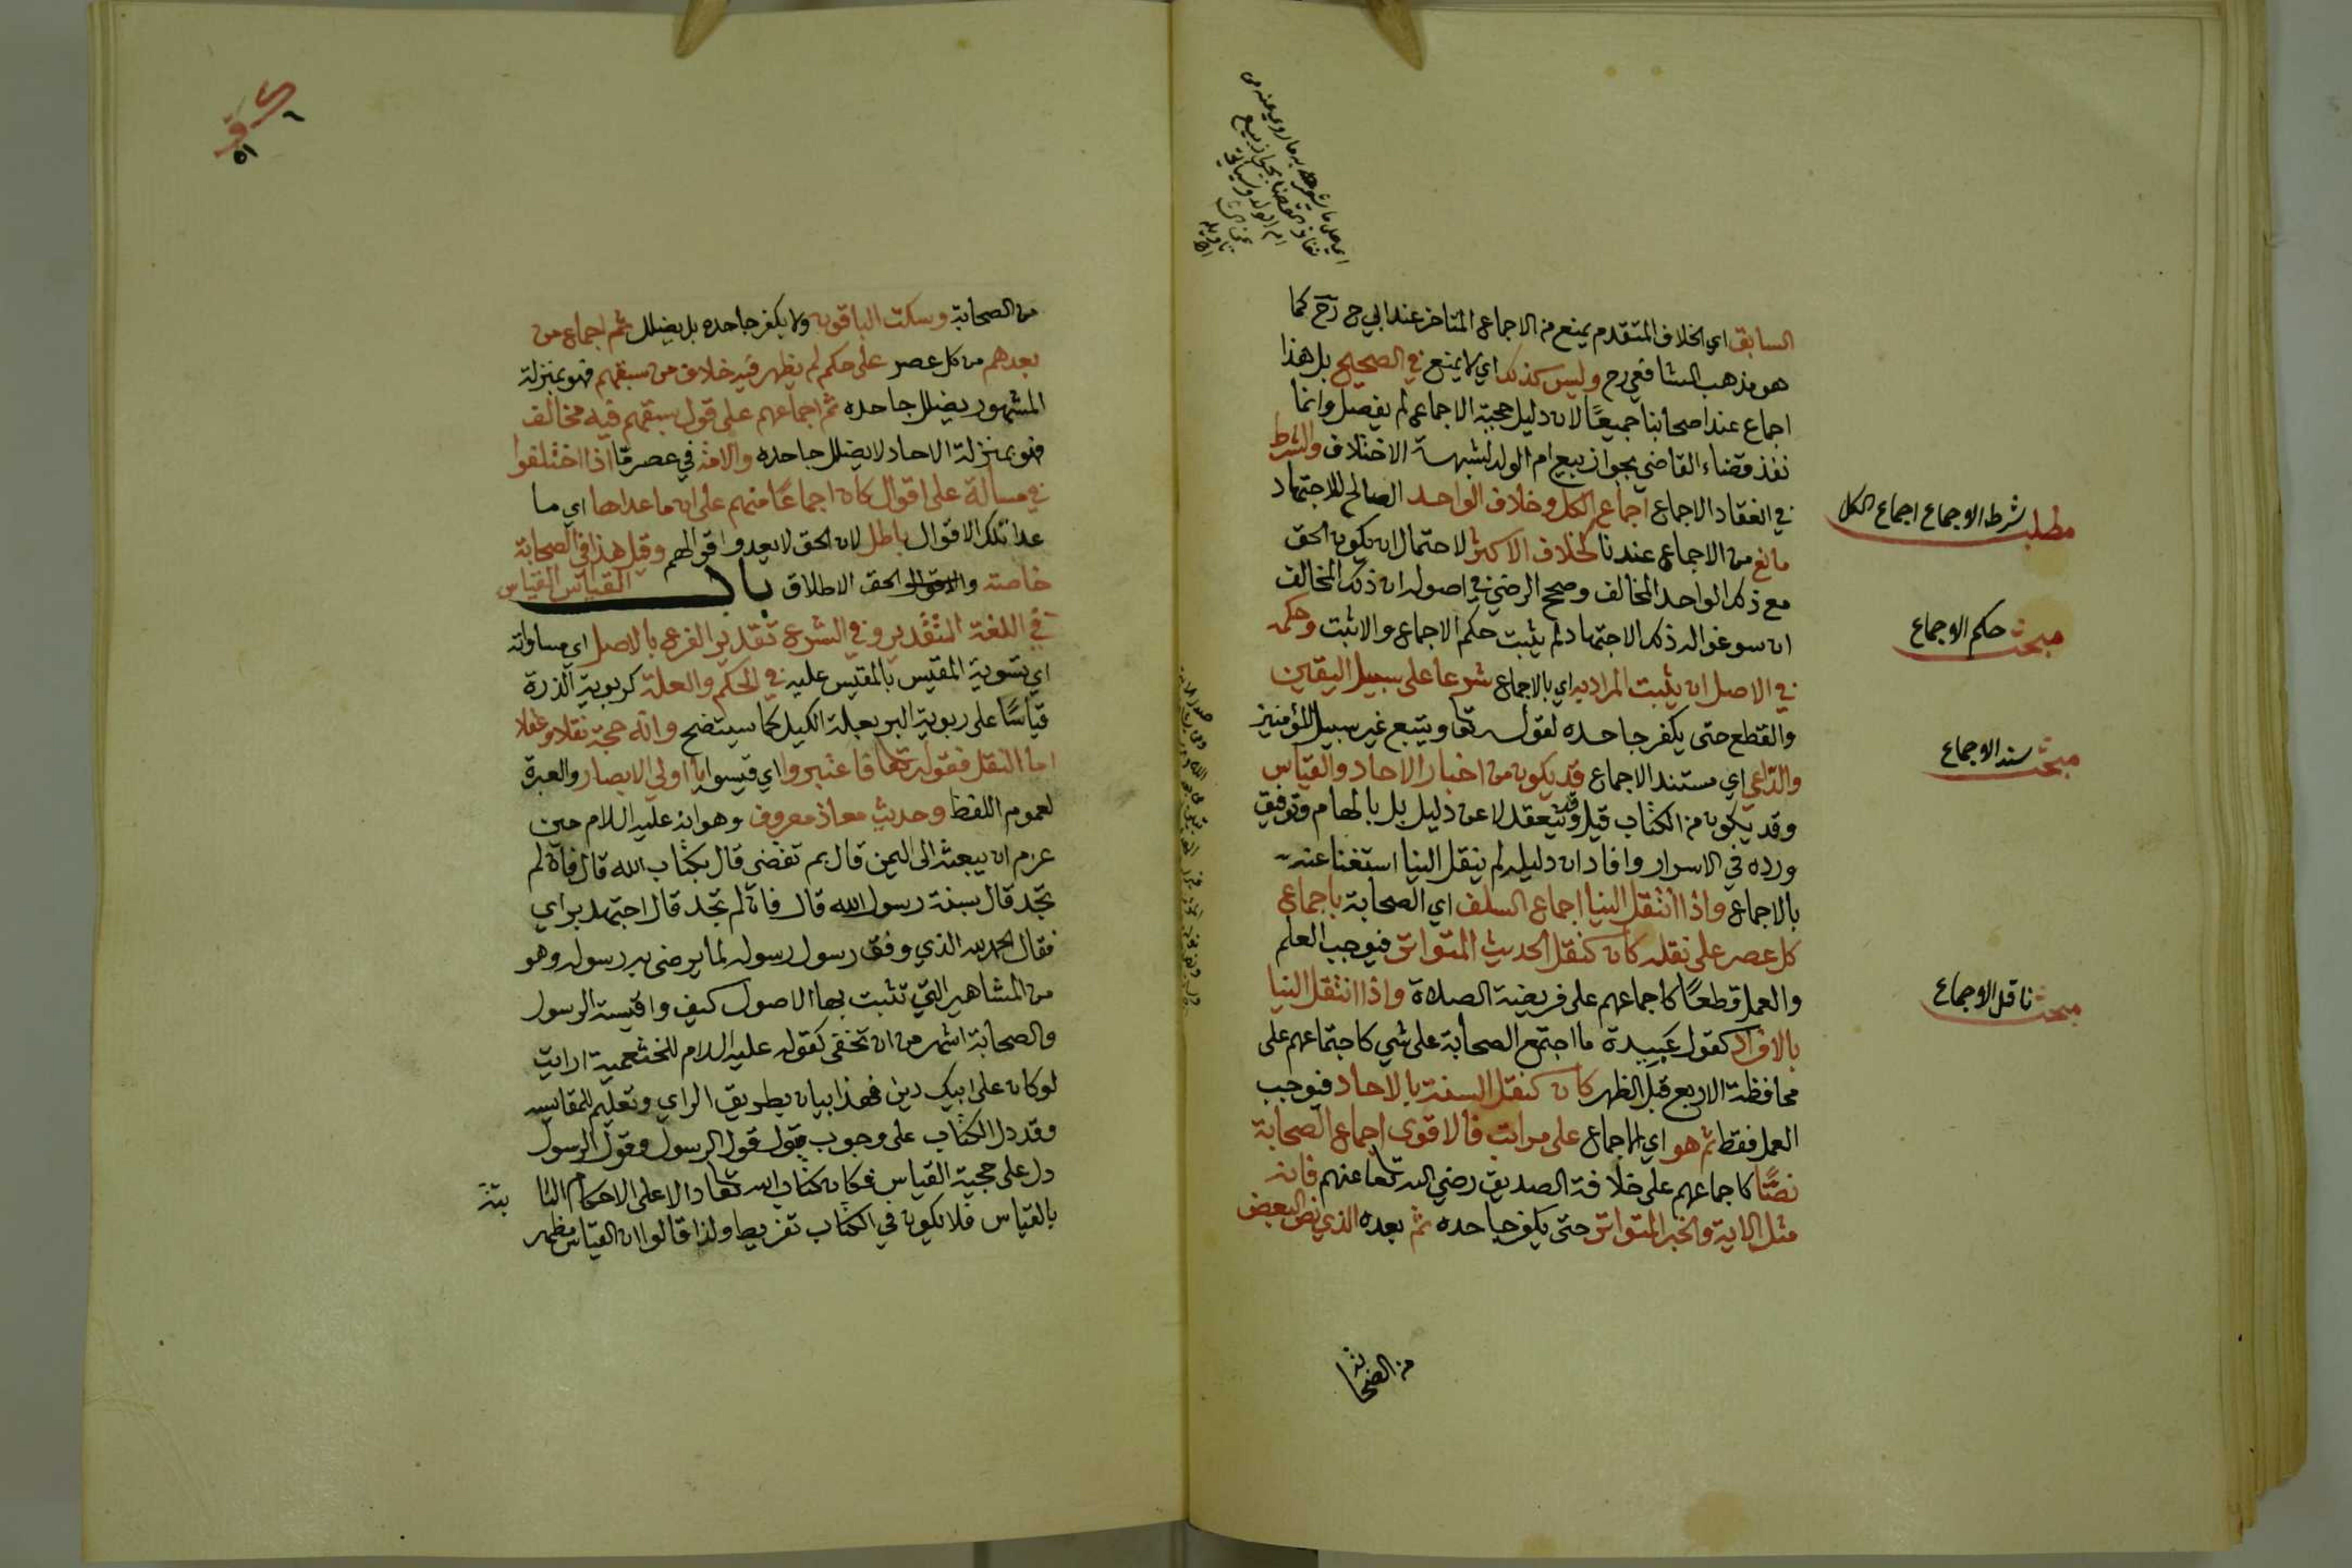 السابق اي الخلاف المتقدم يمنع من الاجماع المتاخر عند ابي ح رح كما
هو مذهب الشافعي رح وليس كذلك اي لا يمنع في الصحيح بل هذا
اجماع عند اصحابنا جميعًا لان دليل حجية الاجماع لم يفصل وانما
نفذ قضاء القاضي بجواز بيع ام الولد لشبهة الاختلاف والشرط
في انعقاد الاجماع اجماع الكل وخلاف الواحد الصالح للاجتهاد
مانع من الاجماع عندنا كخلاف الاكثر لاحتمال ان يكون الحق
مع ذلك الواحد المخالف وصحح الرضي في اصوله ان ذلك المخالف
ان سوغوا له ذلك الاجتهاد لم يثبت حكم الاجماع والا يثبت وحكمه
في الاصل ان يثبت المراد به اي بالاجماع شرعا على سبيل اليقين
والقطع حتى يكفر جاحده لقوله تعا ويتبع غير سبيل المؤمنين
والداعي اي مستند الاجماع قد يكون من اخبار الاحاد والقياس
وقد يكون من الكتاب قيل وقد ينعقد لا عن دليل بل بالهام وتوفيق
ورده في الاسرار وافاد ان دليله لم ينقل الينا استغنا عنه
بالاجماع واذا انتقل الينا اجماع السلف اي الصحابة باجماع
كل عصر على نقله كان كنقل الحديث المتواتر فيوجب العلم
والعمل قطعًا كاجماعهم على فريضة الصلاة واذا انتقل الينا
بالافراد كقول عبيدة ما اجتمع الصحابة على شي كاجتماعهم على
محافظة الاربع قبل الظهر كان كنقل السنة بالاحاد فيوجب
العمل فقط ثم هو اي الاجماع على مراتب فالاقوى اجماع الصحابة
نصًّا كاجماعهم على خلافة الصديق رضي الله تعا عنهم فانه
مثل الاية والخبر المتواتر حتى يكفر جاحده ثم بعده الذي نص البعض
من الصحابة
مطلب شرط الاجماع اجماع الكل
مبحث حكم الاجماع
مبحث سند الاجماع
مبحث ناقل الاجماع
٥١
من الصحابة وسكت الباقون ولا يكفر جاحده بل يضلل ثم اجماع من
بعدهم من كل عصر على حكم لم يظهر فيه خلاف من سبقهم فهو بمنزلة
المشهور يضلل جاحده ثم اجماعهم على قول سبقهم فيه مخالف
فهو بمنزلة الاحاد لا يضلل جاحده والامة في عصر ما اذا اختلفوا
في مسالة على اقوال كان اجماعًا منهم على ان ما عداها اي ما
عدا تلك الاقوال باطل لان الحق لا يعدوا اقوالهم وقيل هذا في الصحابة
خاصة والحق الاطلاق باب القياس القياس
في اللغة التقدير وفي الشرع تقدير الفرع بالاصل اي مساواته
اي تسوية المقيس بالمقيس عليه في الحكم والعلة كربوية الذرة
قياسًا على ربوية البر بعلة الكيل كما سيتضح وانه حجة نقلا وعقلا
اما النقل فقوله تعا فاعتبروا اي قيسوا يا اولي الابصار والعبرة
لعموم اللفظ وحديث معاذ معروف وهو انه عليه السلام حين
عزم ان يبعثه الى اليمن قال بم تقضى قال بكتاب الله قال فان لم
تجد قال بسنة رسول الله قال فان لم تجد قال اجتهد براي
فقال الحمد لله الذي وفق رسول رسوله لما يرضى به رسوله وهو
من المشاهير التي تثبت بها الاصول كيف واقيسة الرسول
والصحابة اشهر من ان تخفى كقوله عليه السلام للخثعمية ارايت
لو كان على ابيك دين فهذا بيان بطريق الراي وتعليم للمقايسة
وقد دل الكتاب على وجوب قبول قول الرسول وقول الرسول
دل على حجية القياس فكان كتاب الله تعا دالا على الاحكام الثا بتة
بالقياس فلا يكون في الكتاب تفريط ولذا قالوا ان القياس مظهر